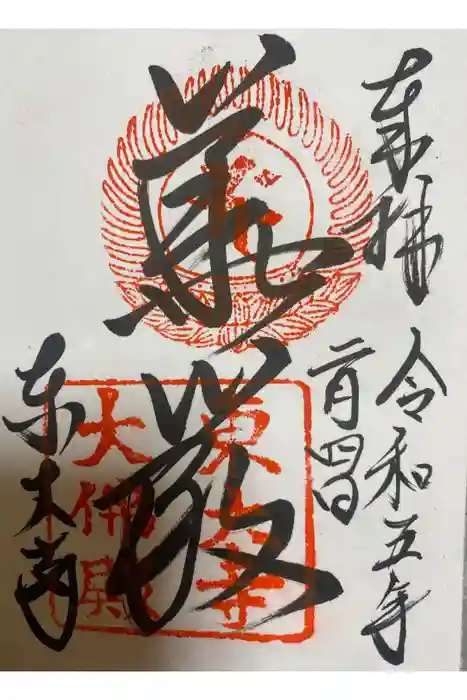 奉拝
令和五年
二月四日
華厳
東大寺
大佛殿
東大寺